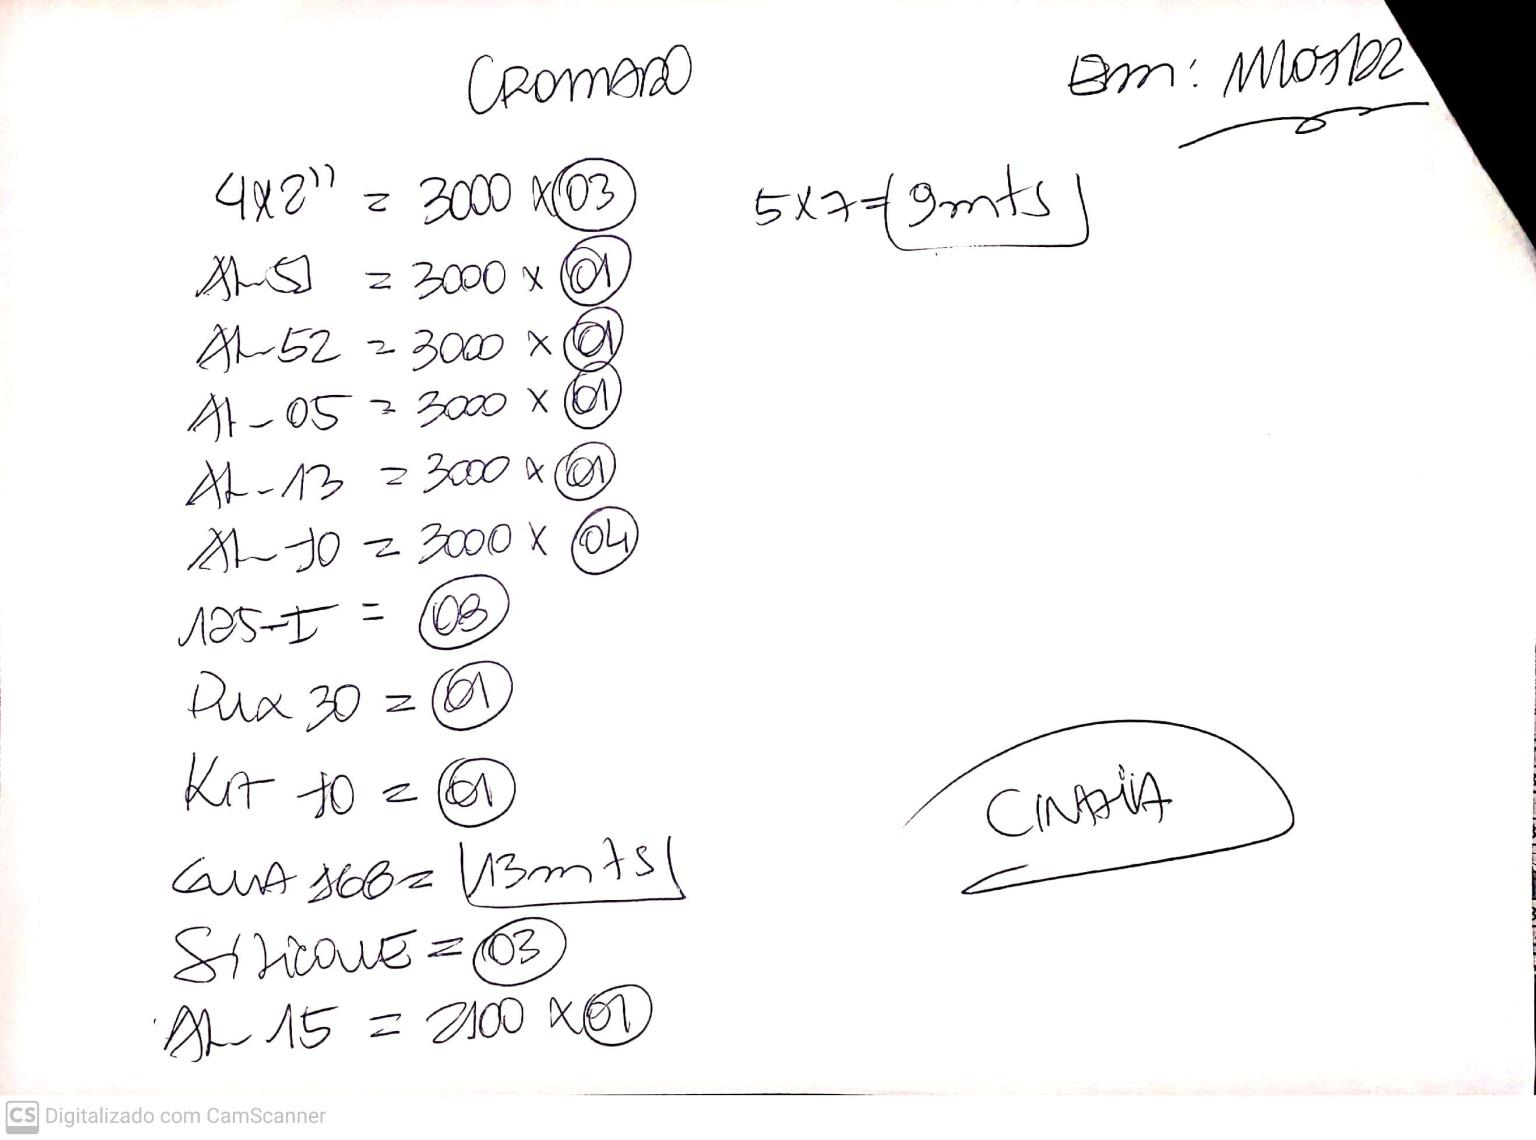 CROMADO
4x2" = 3000 x 03
5x7 = 9mts
AL-51 = 3000 x 01
AL-52 = 3000 x 01
AL-05 = 3000 x 01
AL-13 = 3000 x 01
AL-70 = 3000 x 04
125-I = 03
Pux 30 = 01
Kit 70 = 01
13mts
CINTIIA
Silicone = 03
AL 15 = 2100 x 01
CS Digitalizado com CamScanner